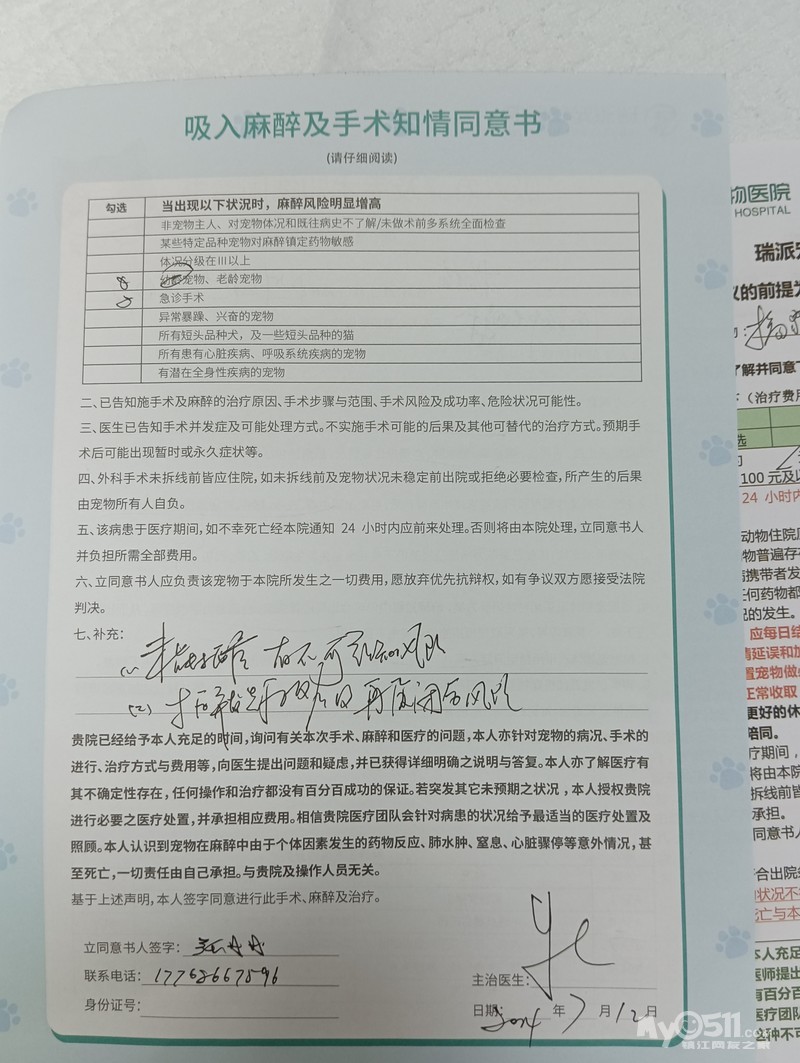 吸入麻醉及手术知情同意书
(请仔细阅读)
勾选 当出现以下状况时，麻醉风险明显增高
非宠物主人、对宠物体况和既往病史不了解/未做术前多系统全面检查
某些特定品种宠物对麻醉镇定药物敏感
体况分级在III以上
幼龄宠物、老龄宠物
急诊手术
异常暴躁、兴奋的宠物
所有短头品种犬，及一些短头品种的猫
所有患有心脏疾病、呼吸系统疾病的宠物
有潜在全身性疾病的宠物
二、已告知施手术及麻醉的治疗原因、手术步骤与范围、手术风险及成功率、危险状况可能性。
三、医生已告知手术并发症及可能处理方式。不实施手术可能的后果及其他可替代的治疗方式。预期手
术后可能出现暂时或永久症状等。
四、外科手术未拆线前皆应住院，如未拆线前及宠物状况未稳定前出院或拒绝必要检查，所产生的后果
由宠物所有人自负。
五、该病患于医疗期间，如不幸死亡经本院通知 24 小时内应前来处理。否则将由本院处理，立同意书人
并负担所需全部费用。
六、立同意书人应负责该宠物于本院所发生之一切费用，愿放弃优先抗辩权，如有争议双方愿接受法院
判决。
七、补充：
(1) 存在不可预知风险
(2) 再度闭合风险
贵院已经给予本人充足的时间，询问有关本次手术、麻醉和医疗的问题，本人亦针对宠物的病况、手术的
进行、治疗方式与费用等，向医生提出问题和疑虑，并已获得详细明确之说明与答复。本人亦了解医疗有
其不确定性存在，任何操作和治疗都没有百分百成功的保证。若突发其它未预期之状况，本人授权贵院
进行必要之医疗处置，并承担相应费用。相信贵院医疗团队会针对病患的状况给予最适当的医疗处置及
照顾。本人认识到宠物在麻醉中由于个体因素发生的药物反应、肺水肿、窒息、心脏骤停等意外情况，甚
至死亡，一切责任由自己承担。与贵院及操作人员无关。
基于上述声明，本人签字同意进行此手术、麻醉及治疗。
立同意书人签字：
联系电话：17768667896
身份证号：
主治医生：
日期：2024 年 7 月 12 日
物医院
HOSPITAL
瑞派宠
议的前提为
了解并同意下
下（治疗费用
选
100 元及以
24 小时内
动物住院
物普遍存
病携带者发
任何药物都
况的发生。
应每日结
情延误和加
置宠物做必
正常收取
更好的休
陪同。
疗期间，
将由本院
拆线前皆
承担。
同意书人
符合出院
状况不
死亡与本
本人充足
医师提出
有百分百
医疗团队
这种不可
My0511.com
镇江网友之家